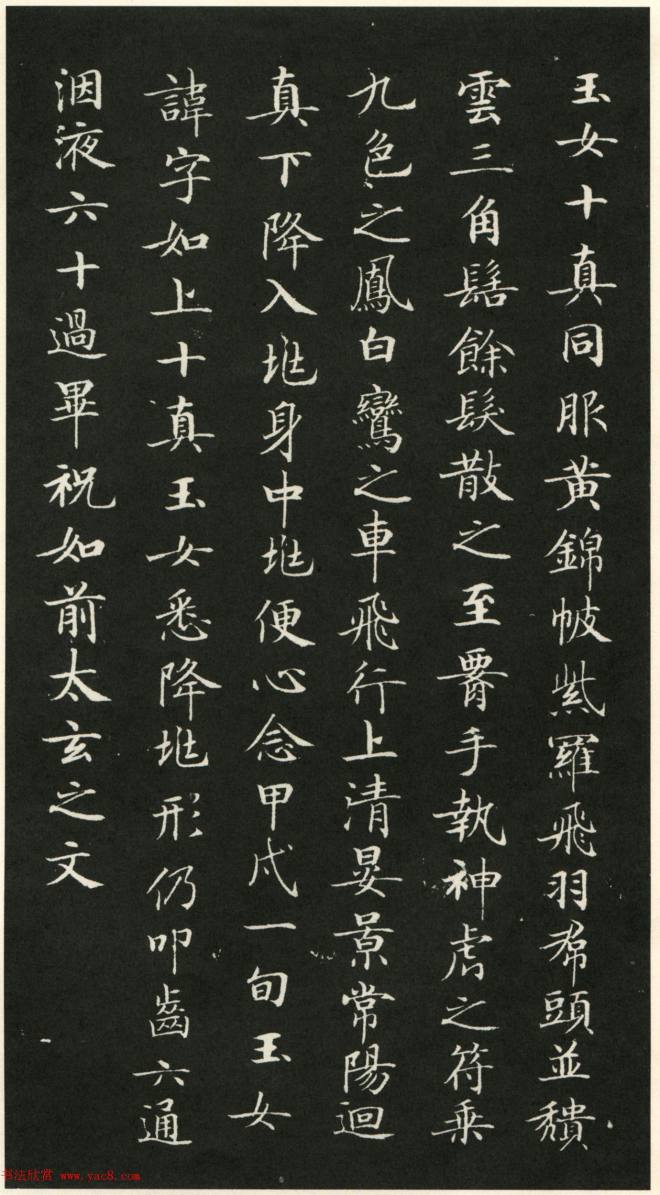 玉女十真同服黃錦帔紫羅飛羽帬頭並穨
雲三角髻餘髮散之至𦝫手執神虎之符乗
九色之鳳白鸞之車飛行上清晏景常陽迴
真下降入𡉏身中𡉏便心念甲戌一旬玉女
諱字如上十真玉女悉降𡉏形仍叩齒六通
咽液六十過畢祝如前太玄之文
书法欣赏 www.yac8.com